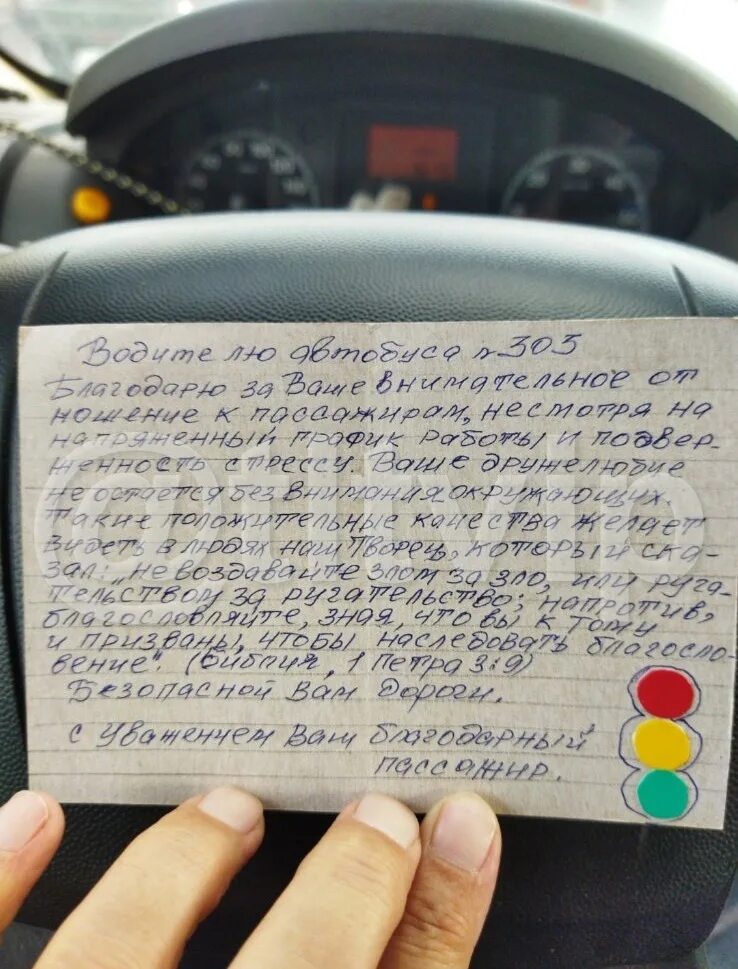 Водителю автобуса № 303
Благодарю за Ваше внимательное от
ношение к пассажирам, несмотря на
напряженный график работы и подвер-
женность стрессу. Ваше дружелюбие
не остается без внимания окружающих.
Такие положительные качества желает
видеть в людях наш Творец, который ска-
зал: „не воздавайте злом за зло, или руга-
тельством за ругательство; напротив,
благословляйте, зная, что вы к тому
и призваны, чтобы наследовать благосло-
вение". (Библия, 1 Петра 3:9)
Безопасной Вам Дороги.
с уважением Ваш благодарный
пассажир.